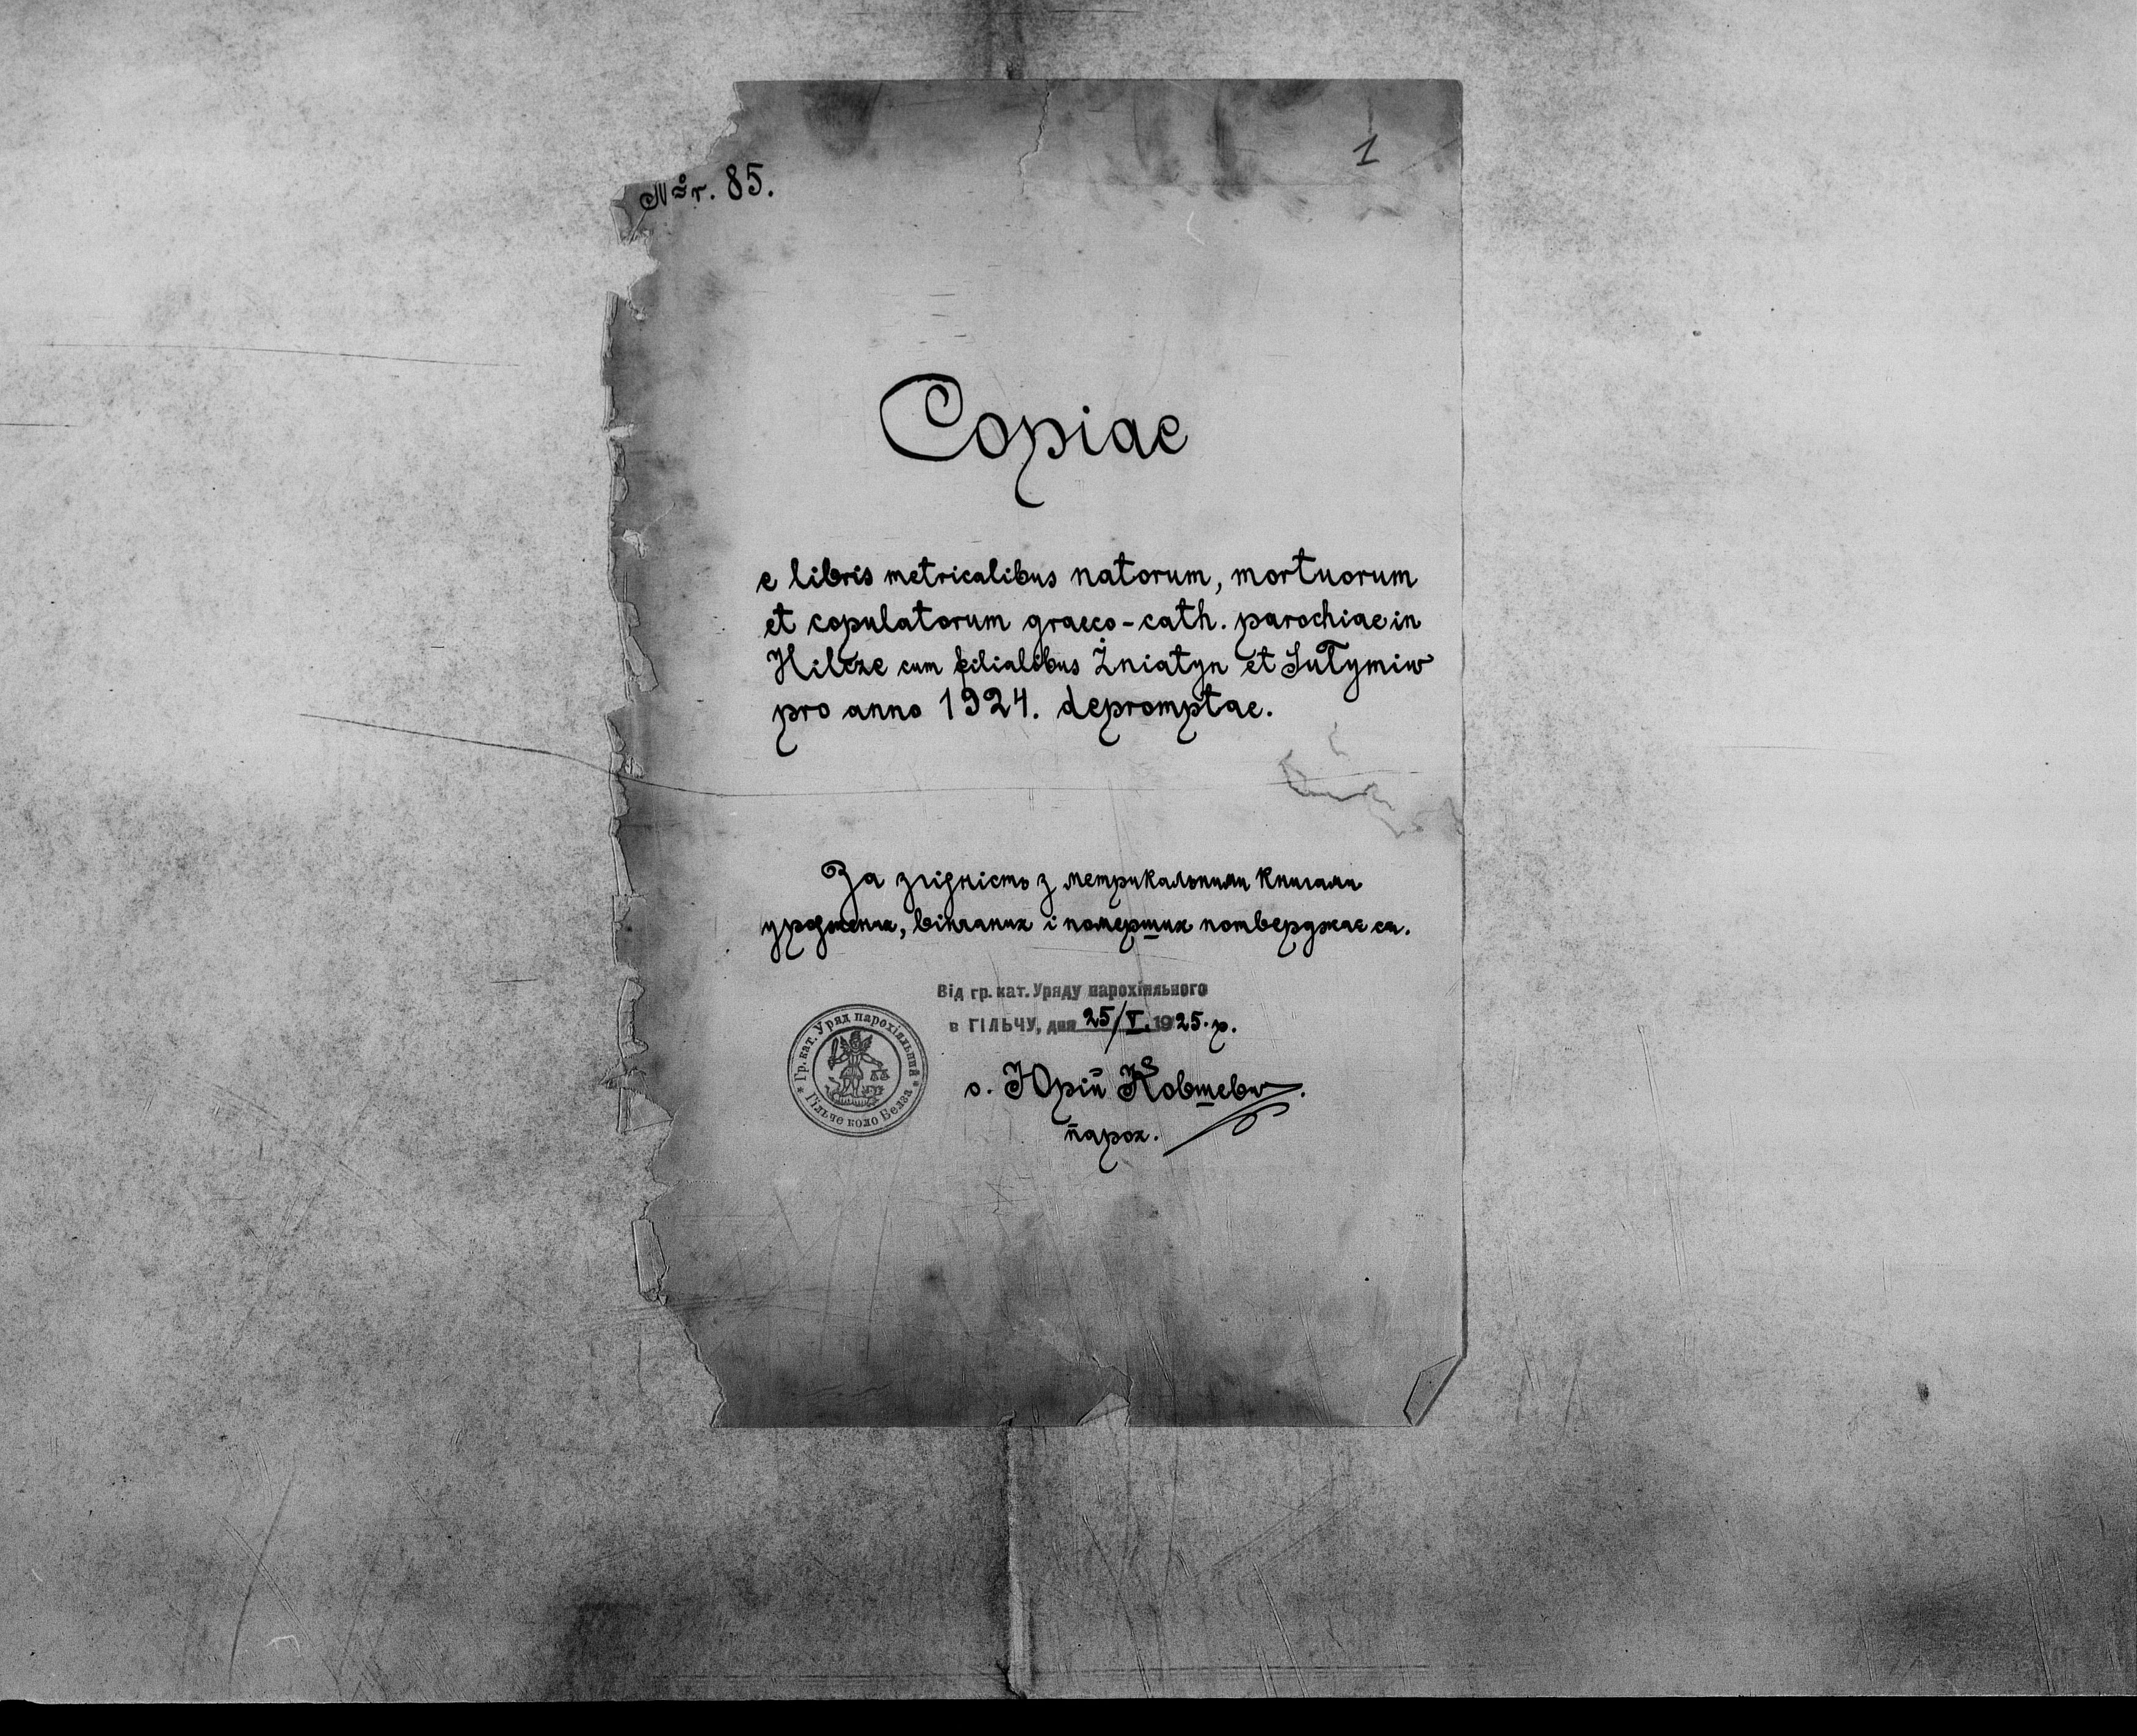 Nr. 85.
1
Copiae
e libris metricalibus natorum, mortuorum
et copulatorum graeco-cath. parochiae in
Hilcze cum filialibus Żniatyn et Sutymiw
pro anno 1924. depromptae.
За згідність з метрикальними книгами
урджених, вінчаних і померших потверджає ся.
Від гр. кат. Уряду парохіяльного
в ГІЛЬЧУ, дня 25/V. 1925. р.
* Гр. кат. Уряд парохіяльний * Гільче коло Белза
о. Юрій
парох.